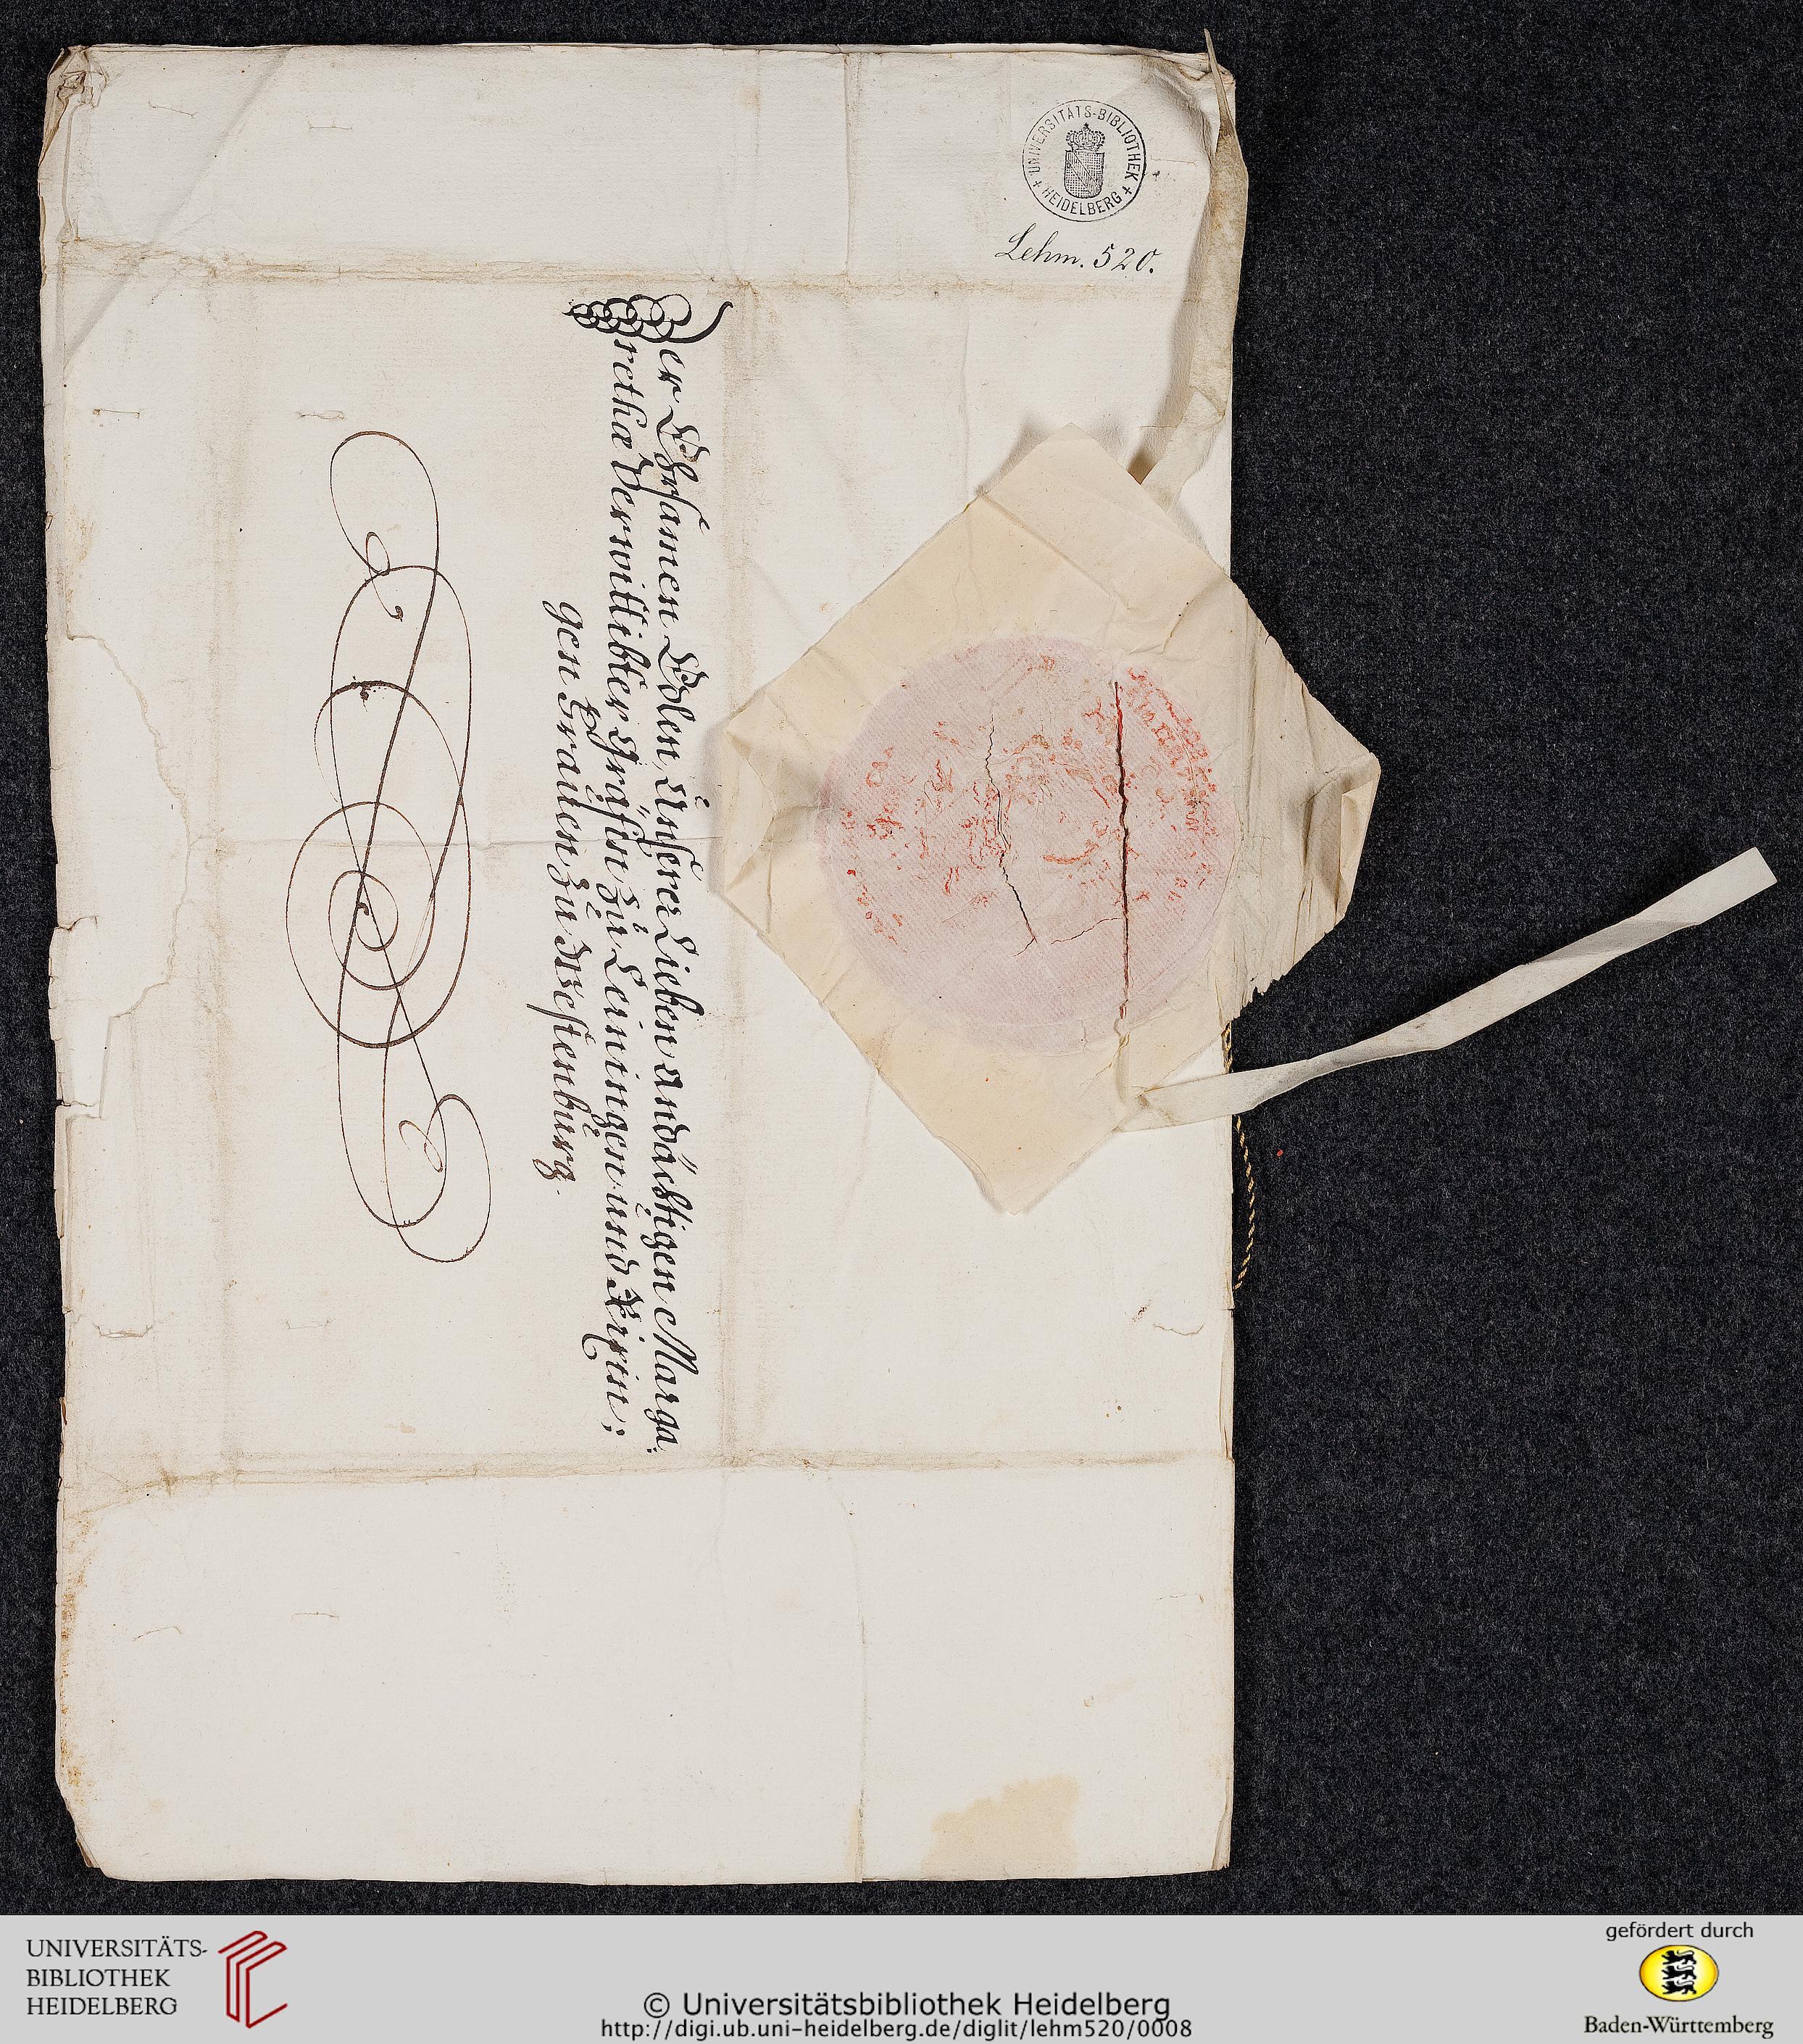 UNIVERSITÄTS-BIBLIOTHEK
+ HEIDELBERG +
Lehm. 520.
Der Ehrsamen Edlen, Unserer Lieben andächtigen Marga:
rethæ Verwittibter Gräfin Zu Leiningen und Rixin;
gen Frauen Zu Westenburg.
UNIVERSITÄTS-
BIBLIOTHEK
HEIDELBERG
© Universitätsbibliothek Heidelberg
http://digi.ub.uni-heidelberg.de/diglit/lehm520/0008
gefördert durch
Baden-Württemberg